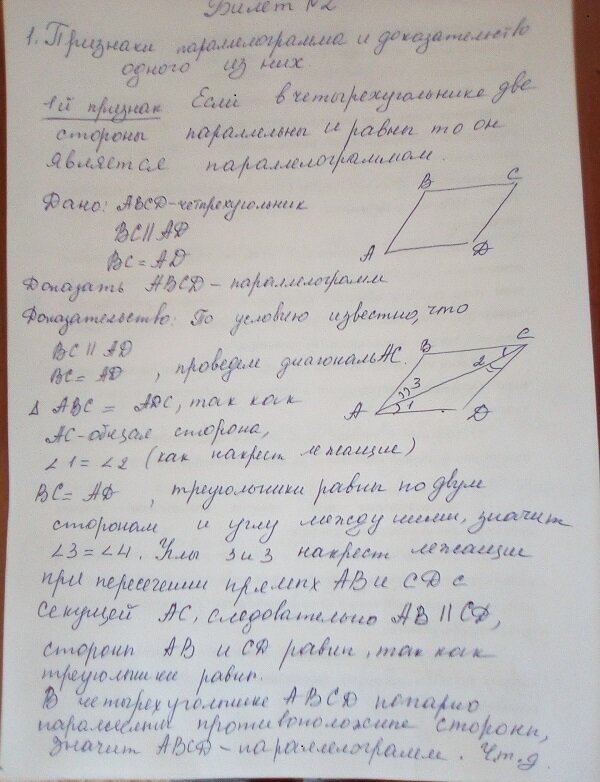 Билет №2
1. Признаки параллелограмма и доказательство
одного из них.
1й признак Если в четырехугольнике две
стороны параллельны и равны то он
является параллелограммом.
Дано: ABCD-четырехугольник
BC || AD
BC = AD
B C
A D
Доказать ABCD - параллелограмм
Доказательство: По условию известно, что
BC || AD
BC = AD, проведем диагональ AC.
B C
A D
1 2 3 1
Δ ABC = ADC, так как
AC-общая сторона,
∠1 = ∠2 (как накрест лежащие)
BC = AD, треугольники равны по двум
сторонам и углу между ними, значит
∠3 = ∠4. Углы 3 и 3 накрест лежащие
при пересечении прямых AB и CD с
секущей AC, следовательно AB || CD,
стороны AB и CD равны, так как
треугольники равны.
В четырехугольнике ABCD попарно
параллельны противоположные стороны,
значит ABCD - параллелограмм. Чт.д.